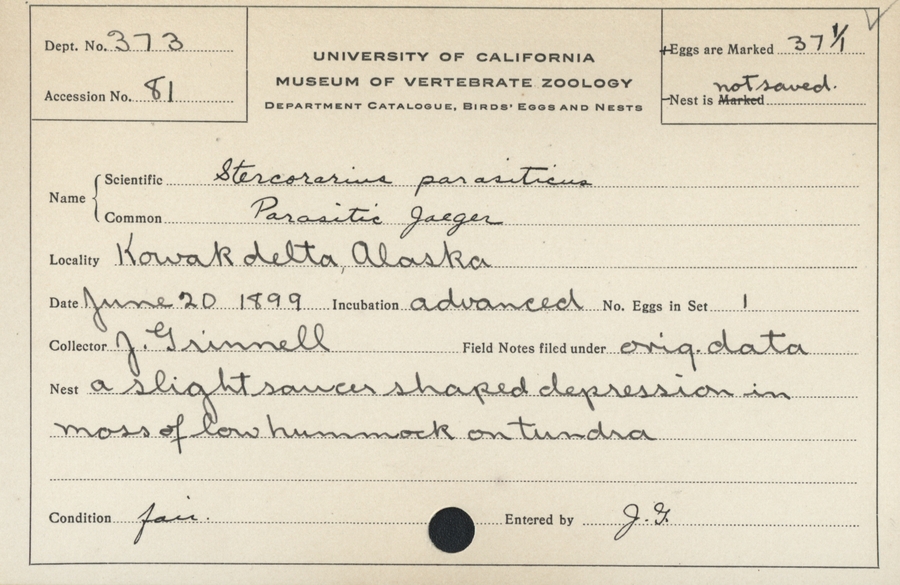 Dept. No. 373
Accession No. 81
UNIVERSITY OF CALIFORNIA
MUSEUM OF VERTEBRATE ZOOLOGY
DEPARTMENT CATALOGUE, BIRDS' EGGS AND NESTS
Eggs are Marked 37 1/1
not saved.
Nest is Marked
Name
Scientific Stercorarius parasiticus
Common Parasitic Jaeger
Locality Kowak delta, Alaska
Date June 20 1899 Incubation advanced No. Eggs in Set 1
Collector J. Grinnell Field Notes filed under orig. data
Nest a slight saucer shaped depression in
moss of low hummock on tundra
Condition fair.
Entered by J. G.